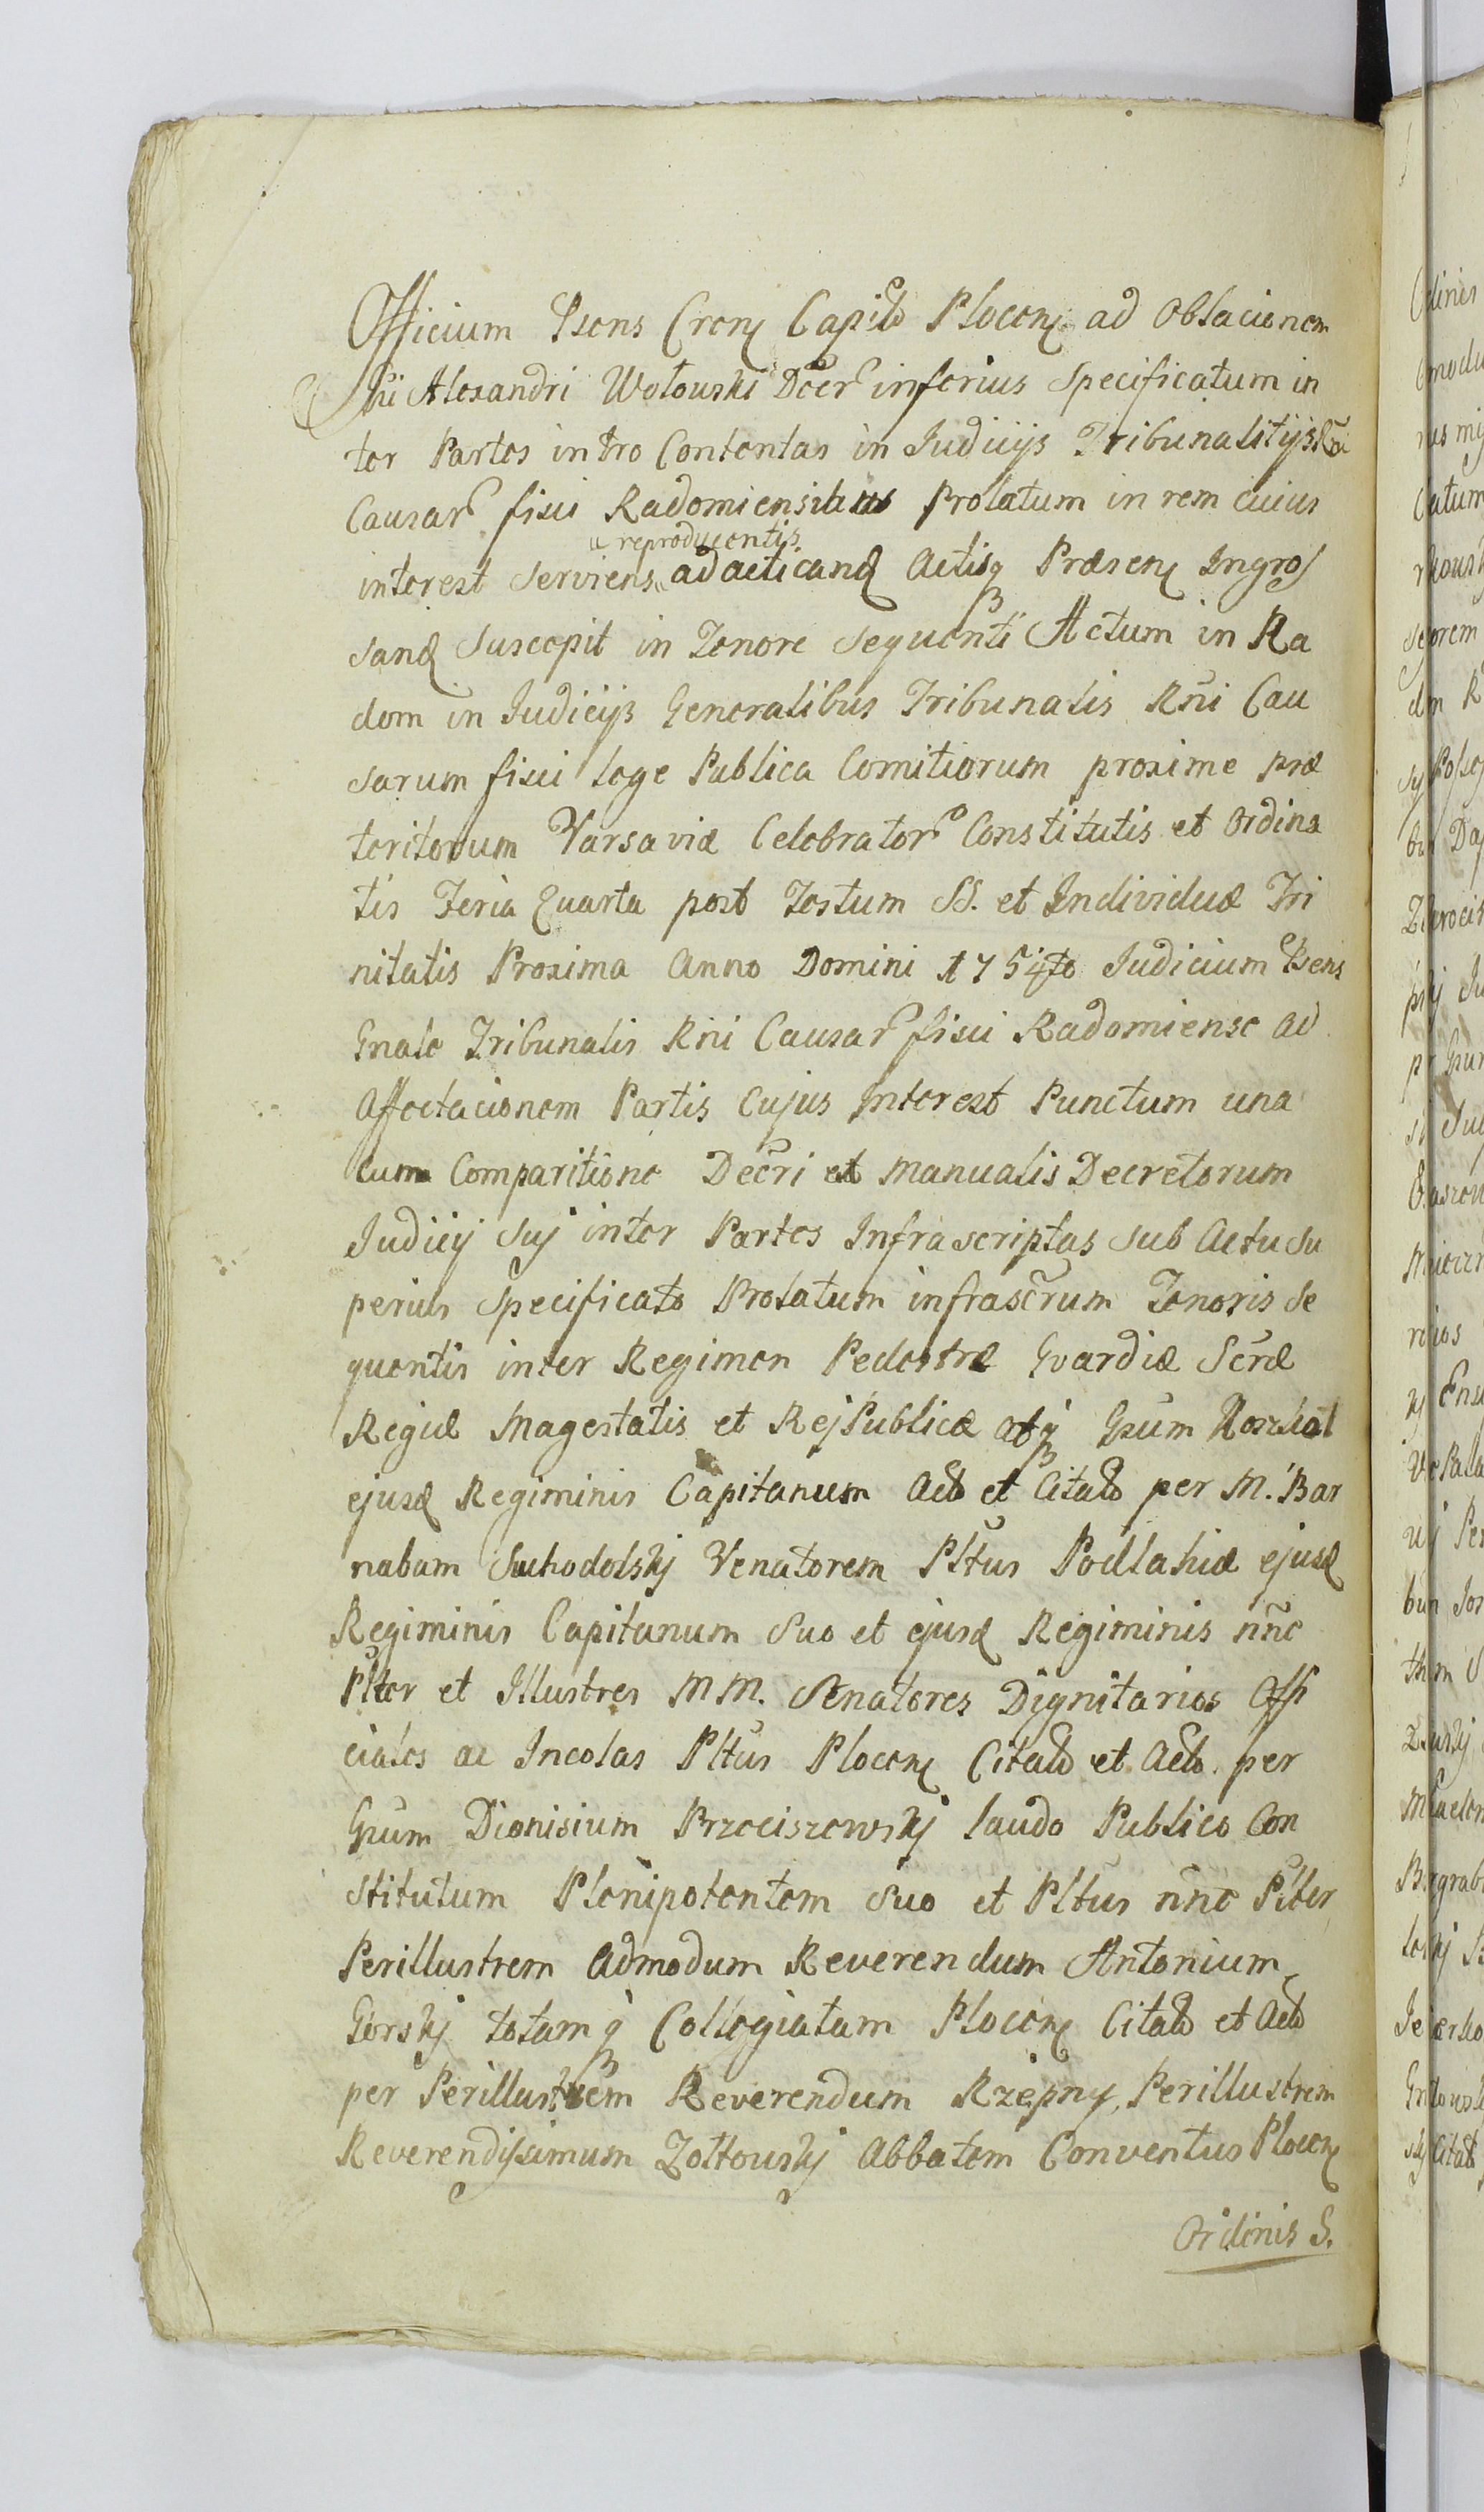 Officium Psens Cren Capitł Plocen ad Oblacionem
Alexandri Wołouski Decr inferius Specificatum in
ter Partes intro Contentas in Judicijs Tribunalitijs Rni
Causar fisci Radomiensibus Prolatum in rem cuius
reproducentis
interest Serviens ad acticand Actisq Præsen Ingros
sand Suscepit in Tenore Sequenti Actum in Ra
dom in Judicijs Generalibus Tribunalis Rni Cau
sarum fisci lege Publica Comitiorum proxime præ
teritorum Varsaviæ Celebrator Constitutis et Ordina
tis Feria Quarta post Festum SS. et Individuæ Tri
nitatis Proxima Anno Domini 1754to Judicium Psens
Gnale Tribunalis Rni Causar fisci Radomiense ad
Affectacionem Partis Cujus Interest Punctum una
cum Comparitione Decri et Manualis Decretorum
Judicij Sui inter Partes Infrascriptas Sub Actu Su
perius Specificato Prolatum infrascrum Tenoris Se
quentis inter Regimen Pedestræ Gvardiæ Scræ
Regiæ Magestatis et ReiPublicæ atq Gsum
ejusd Regiminis Capitanum Actł et Citatł per M. Bar
nabam Suchodolskj Venatorem Pltus Podlahiæ ejusd
Regiminis Capitanum Suo et ejusd Regiminis nnc
Plter et Illustres MM. Senatores Dignitarios Offi
ciales ac Incolas Pltus Plocen Citatł et Actł. per
Gsum Dionisium Przeciszewskj laudo Publico Con
stitutum Plenipotentem Suo et Pltus nnc Plter
Perillustrem Admodum Reverendum Antonium
Gorskj totamq Collegiatam Plocen Citatł et Actł
per Perillustrem Reverendum Rzepny, Perillustrem
Reverendissimum Zołtouskj Abbatem Conventus Plocen
Ordinis S.